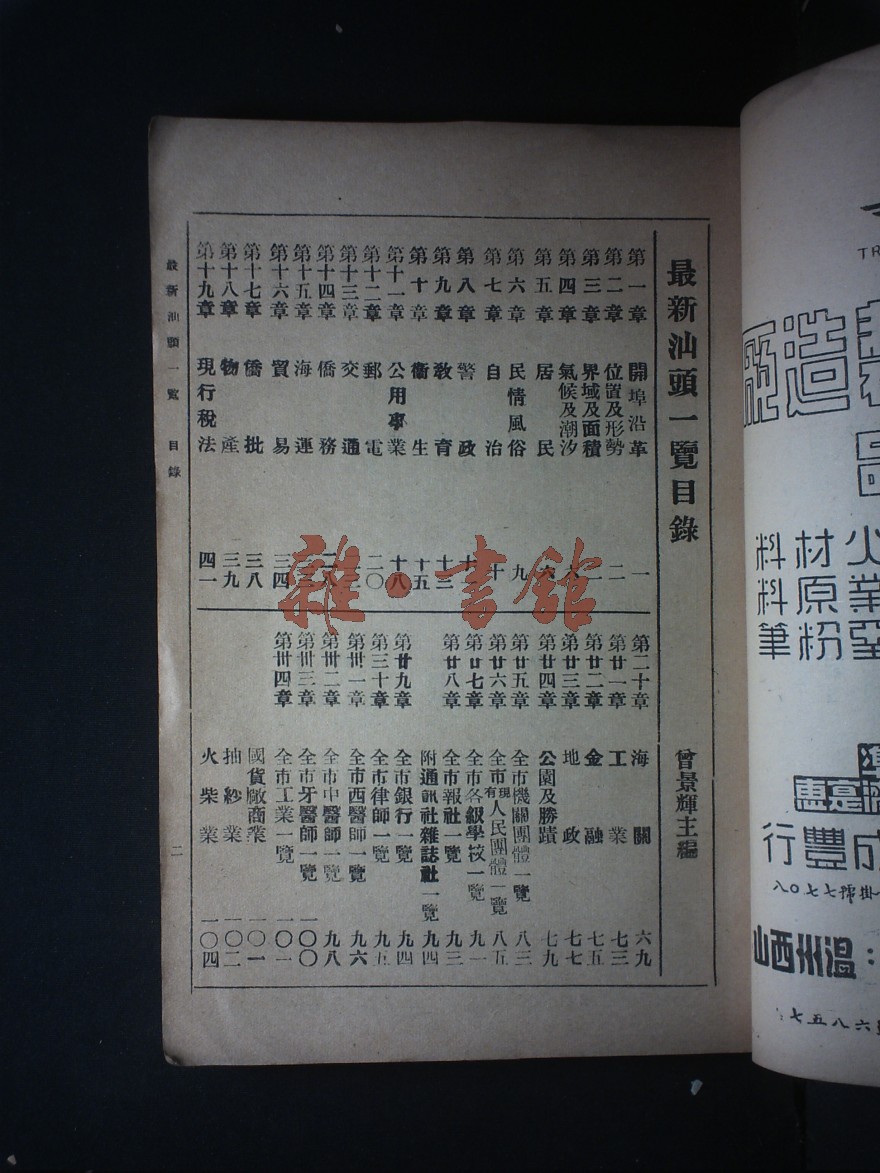 最新汕頭一覽目錄
曾景輝主編
第一章 開埠沿革 一
第二章 位置及形勢 二
第三章 界域及面積
第四章 氣候及潮汐 六
第五章 居民 六
第六章 民情風俗 九
第七章 自治 十
第八章 警政
第九章 教育 十三
第十章 衞生 十五
第十一章 公用事業 十八
第十二章 郵電 二〇
第十三章 交通
第十四章 僑務 二八
第十五章 海運
第十六章 貿易 三四
第十七章 僑批 三八
第十八章 物產 三九
第十九章 現行稅法 四一
第二十章 海關 六九
第廿一章 工業 七三
第廿二章 金融 七五
第廿三章 地政 七七
第廿四章 公園及勝蹟 七九
第廿五章 全市機關團體一覽 八三
第廿六章 全市現有人民團體一覽 八五
第廿七章 全市各級學校一覽 九一
第廿八章 全市報社一覽 九三
附通訊社雜誌社一覽 九四
第廿九章 全市銀行一覽 九四
第三十章 全市律師一覽 九五
第卅一章 全市西醫師一覽 九六
第卅二章 全市中醫師一覽 九八
第卅三章 全市牙醫師一覽 一〇〇
第卅四章 全市工業一覽 一〇一
國貨廠商業 一〇一
抽紗業 一〇二
火柴業 一〇四
最新汕頭一覽 目錄 二
雜·書館
TR
造
品
火
材原粉
料料筆
成豐行
掛號七七〇八
：溫州西山
六八五七